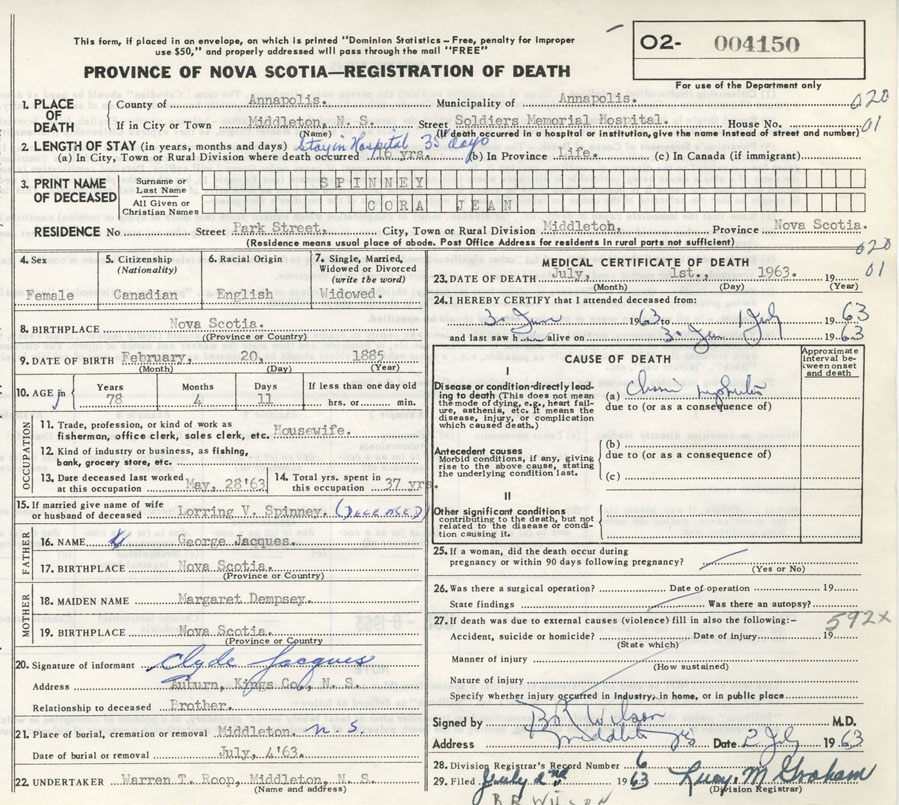 This form, if placed in an envelope, on which is printed "Dominion Statistics – Free, penalty for improper
use $50," and properly addressed will pass through the mail "FREE"
O2- 004150
For use of the Department only
PROVINCE OF NOVA SCOTIA—REGISTRATION OF DEATH
1. PLACE OF DEATH
County of Annapolis. Municipality of Annapolis. 020
If in City or Town Middleton, N. S. Street Soldiers Memorial Hospital. House No. 01
(Name) (If death occurred in a hospital or institution, give the name instead of street and number)
2. LENGTH OF STAY (in years, months and days) Stay in Hospital 35 days
(a) In City, Town or Rural Division where death occurred 76 yrs. (b) In Province Life. (c) In Canada (if immigrant)
3. PRINT NAME OF DECEASED
Surname or Last Name SPINNEY
All Given or Christian Names CORA JEAN
RESIDENCE No Street Park Street, City, Town or Rural Division Middletoh, Province Nova Scotia.
(Residence means usual place of abode. Post Office Address for residents in rural parts not sufficient) 020
01
4. Sex
Female
5. Citizenship (Nationality)
Canadian
6. Racial Origin
English
7. Single, Married, Widowed or Divorced (write the word)
Widowed.
8. BIRTHPLACE Nova Scotia.
(Province or Country)
9. DATE OF BIRTH February, 20, 1885
(Month) (Day) (Year)
10. AGE in Years Months Days If less than one day old
78 4 11 hrs. or min.
OCCUPATION
11. Trade, profession, or kind of work as
fisherman, office clerk, sales clerk, etc. Housewife.
12. Kind of industry or business, as fishing,
bank, grocery store, etc.
13. Date deceased last worked at this occupation May, 28'63
14. Total yrs. spent in this occupation 37 yrs.
15. If married give name of wife
or husband of deceased Lorring V. Spinney. (DECEASED)
FATHER
16. NAME George Jacques.
17. BIRTHPLACE Nova Scotia.
(Province or Country)
MOTHER
18. MAIDEN NAME Margaret Dempsey.
19. BIRTHPLACE Nova Scotia.
(Province or Country
20. Signature of informant Clyde Jacques
Address Auburn, Kings Co., N. S.
Relationship to deceased Brother.
21. Place of burial, cremation or removal Middleton. N.S.
Date of burial or removal July, 4'63.
22. UNDERTAKER Warren T. Roop, Middleton, N. S.
(Name and address)
MEDICAL CERTIFICATE OF DEATH
23. DATE OF DEATH July, 1st., 1963. 19
(Month) (Day) (Year)
24. I HEREBY CERTIFY that I attended deceased from:
1963 to 1963
and last saw h alive on 1 July 1963
CAUSE OF DEATH
Approximate interval between onset and death
I
Disease or condition directly leading to death (This does not mean
the mode of dying, e.g., heart failure, asthenia, etc. It means the
disease, injury, or complication
which caused death.)
(a)
due to (or as a consequence of)
Antecedent causes
Morbid conditions, if any, giving
rise to the above cause, stating
the underlying condition last.
(b)
due to (or as a consequence of)
(c)
II
Other significant conditions
contributing to the death, but not
related to the disease or condition causing it.
25. If a woman, did the death occur during
pregnancy or within 90 days following pregnancy?
(Yes or No)
26. Was there a surgical operation? Date of operation 19
State findings Was there an autopsy?
27. If death was due to external causes (violence) fill in also the following:– 592x
Accident, suicide or homicide? Date of injury 19
(State which)
Manner of injury
(How sustained)
Nature of injury
Specify whether injury occurred in industry, in home, or in public place
Signed by BR Wilson M.D.
Address Middleton NS Date 2 July 1963
28. Division Registrar's Record Number 6
29. Filed July 2nd 1963 Lucy. M Graham
(Division Registrar)
B R WILSON